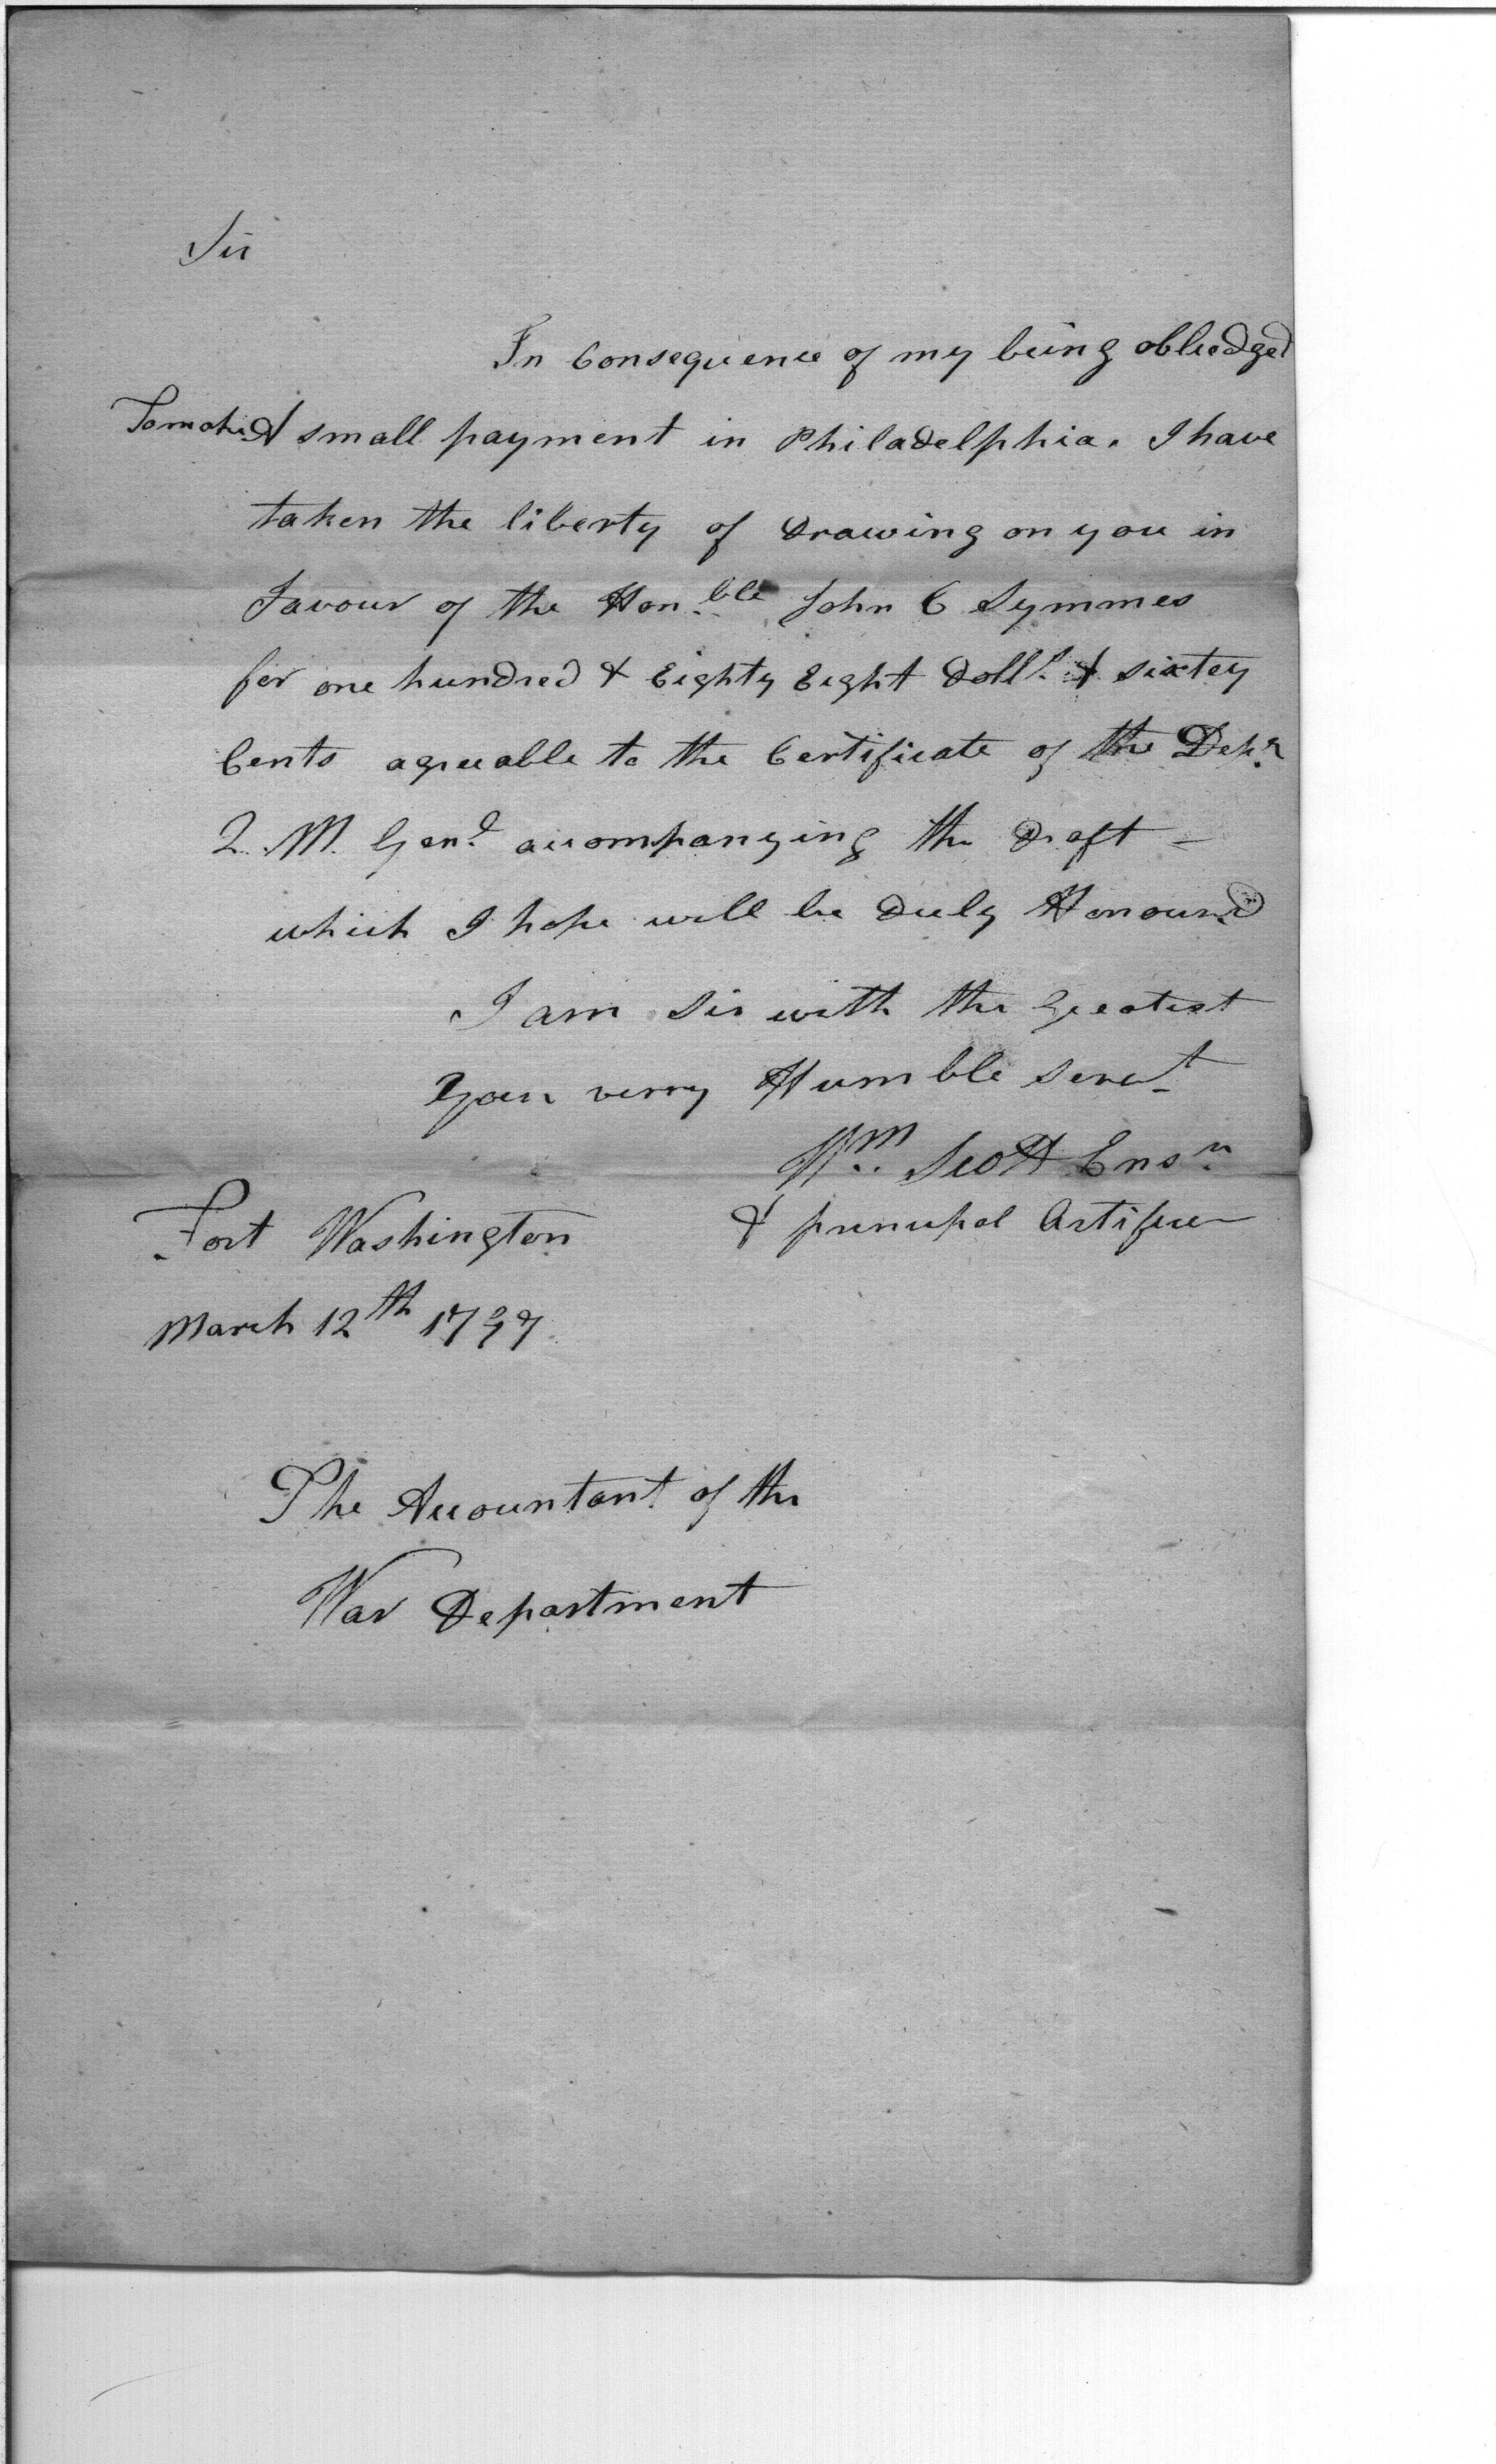 Sir
In Consequence of my being obliedged
To make A small payment in Philadelphia. I have
taken the liberty of Drawing on you in
Favour of the Honble John C Symmes
for one hundred & Eighty Eight Dolls & sixtey
Cents agreeable to the Certificate of the Depy
Q. M. Genl accompanying the Draft –
which I hope will be Duly Honoured
I am Sir with the Greatest
Your verry Humble Servt
Wm Scott Ensn
& principal Artificer
Fort Washington
March 12th 1797
The Accountant of the
War Department